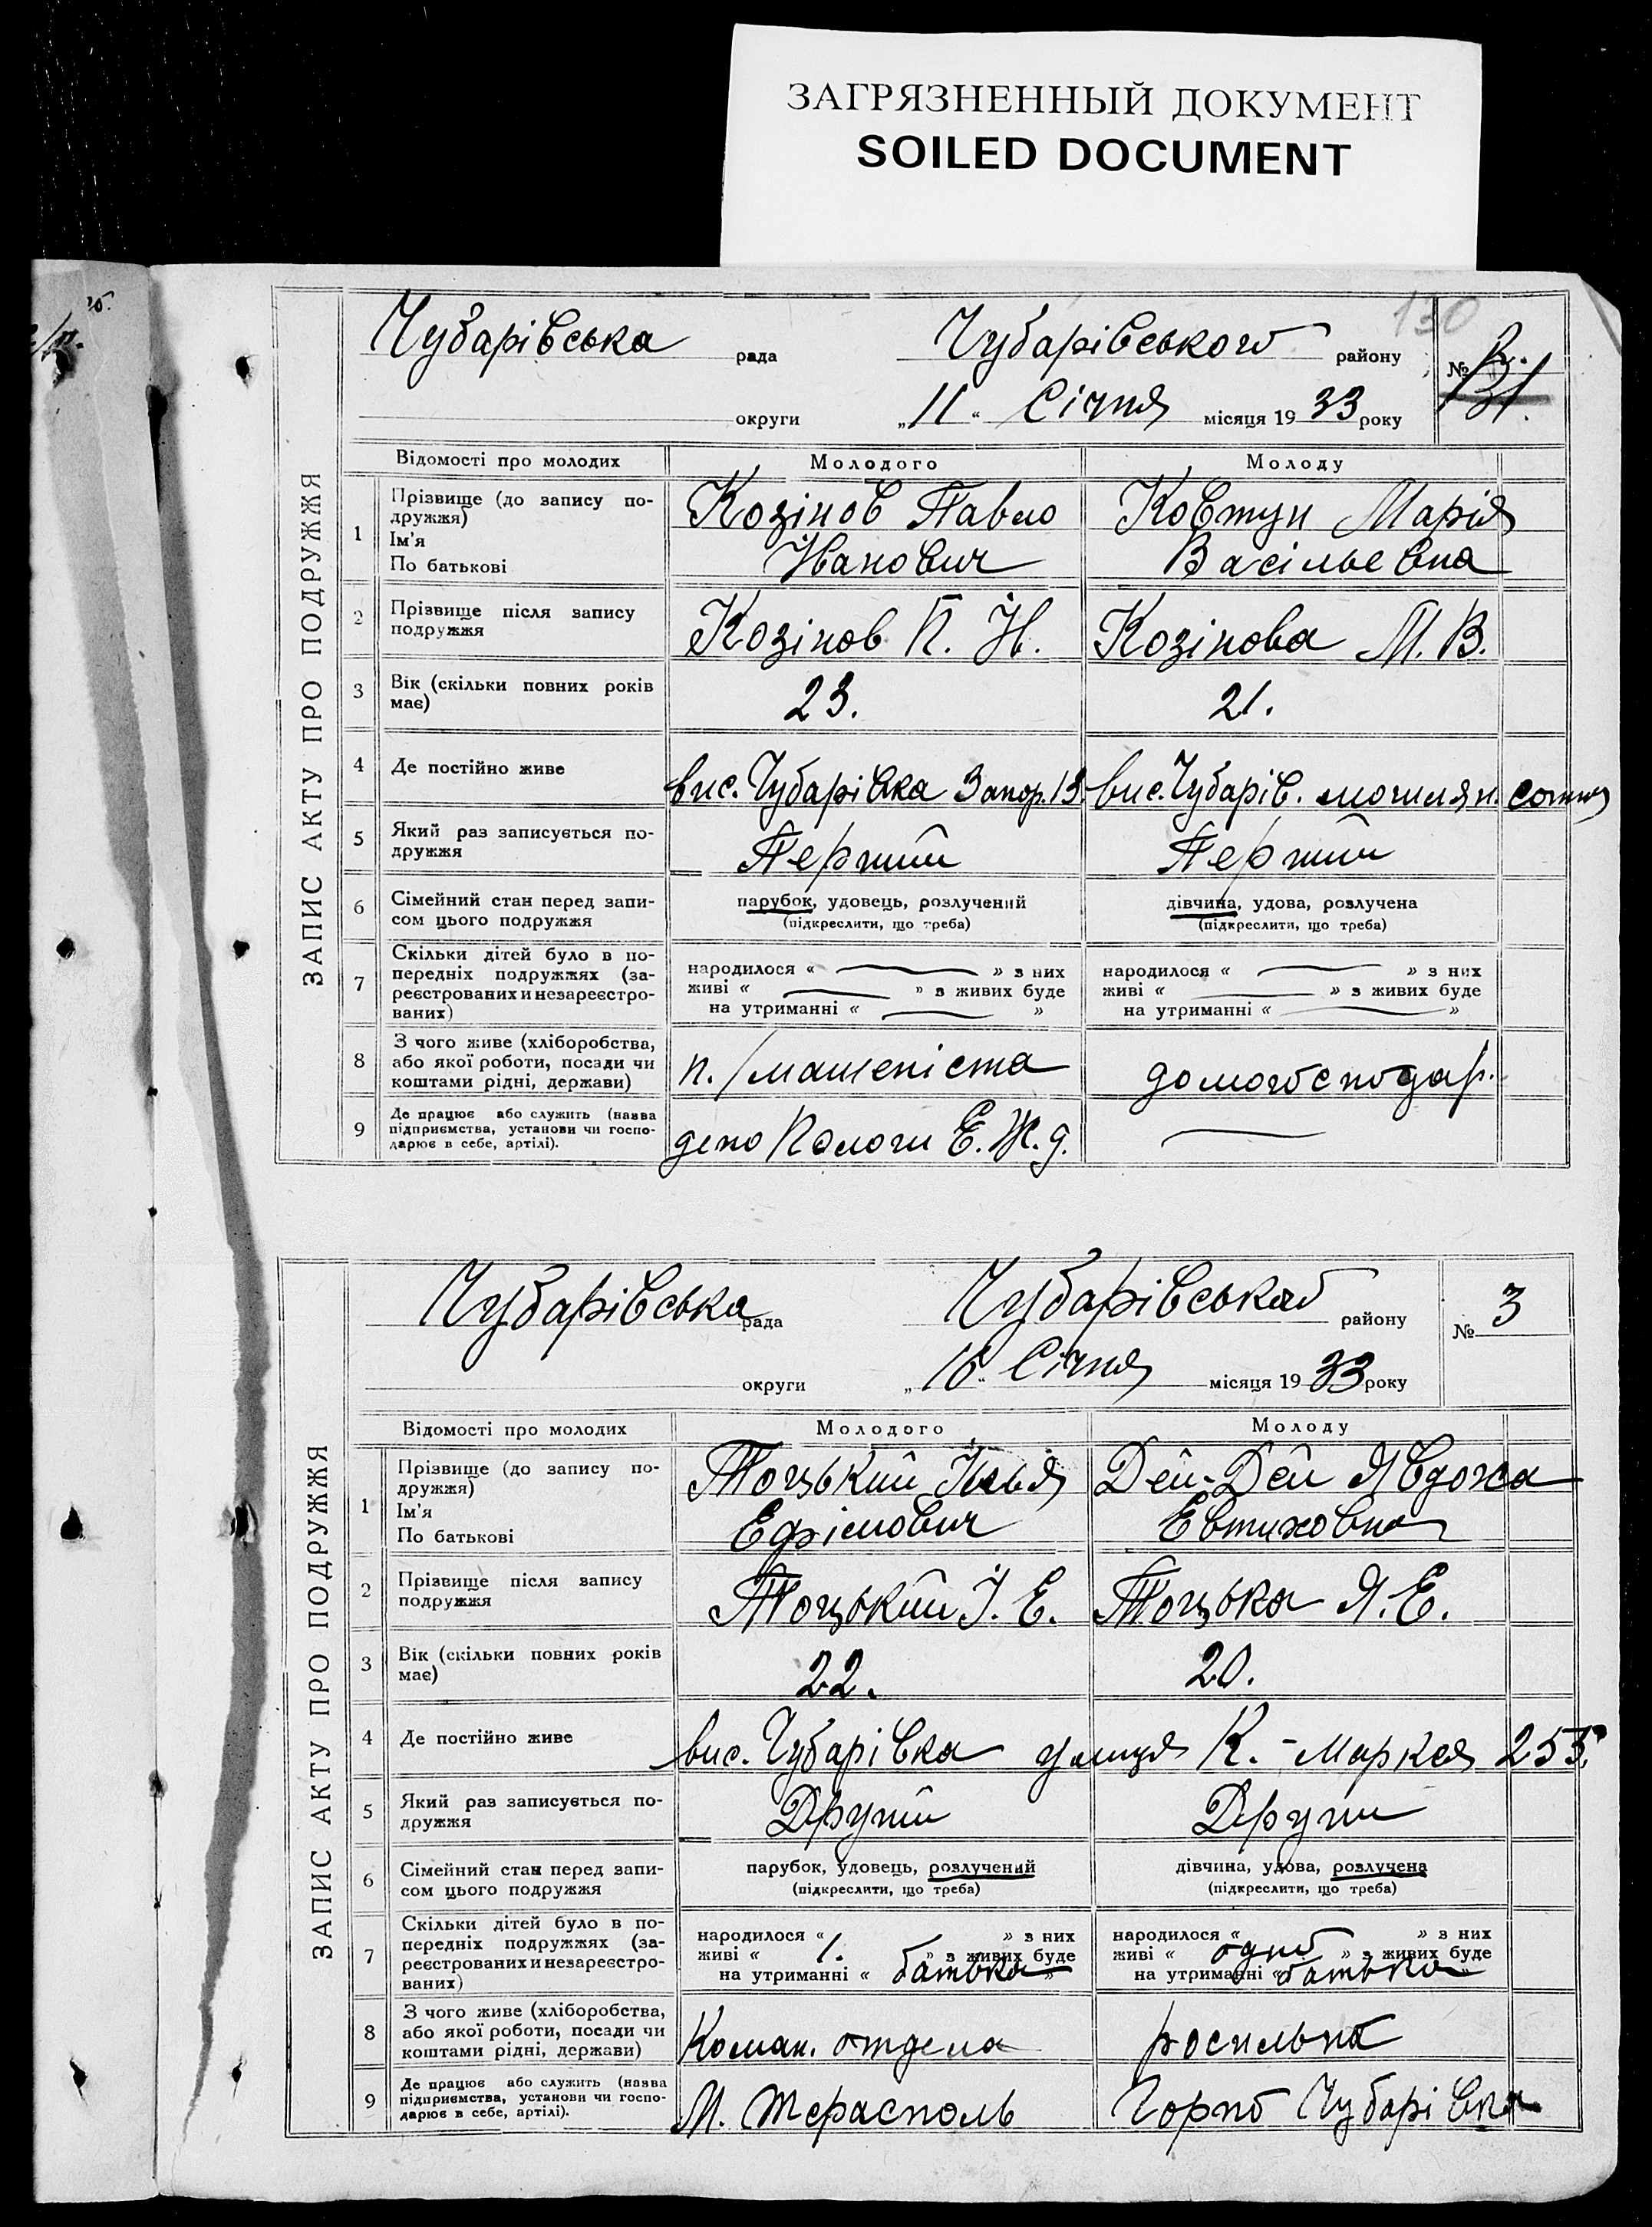 ЗАГРЯЗНЕННЫЙ ДОКУМЕНТ
SOILED DOCUMENT
130
Чубарівська рада Чубарівського району № 2.
131.
округи „11“ Січня місяця 1933 року
ЗАПИС АКТУ ПРО ПОДРУЖЖЯ
Відомості про молодих Молодого Молоду
1 Прізвище (до запису по-
дружжя)
Ім'я
По батькові
Козінов Павло
Іванович
Ковтун Марія
Васільевна
2 Прізвище після запису
подружжя
Козінов П. І.
Козінова М. В.
3 Вік (скільки повних років
має)
23.
21.
4 Де постійно живе
вис. Чубарівка Запор. 13.
вис. Чубарів.
5 Який раз записується по-
дружжя
Перший
Перший
6 Сімейний стан перед запи-
сом цього подружжя
парубок, удовець, розлучений
(підкреслити, що треба)
дівчина, удова, розлучена
(підкреслити, що треба)
7 Скільки дітей було в по-
передніх подружжях (за-
реєстрованих и незареєстро-
ваних)
народилося « » з них
живі « » з живих буде
на утриманні « »
народилося « » з них
живі « » з живих буде
на утриманні « »
8 З чого живе (хліборобства,
або якої роботи, посади чи
коштами рідні, держави)
п./машеніста
домогосподар.
9 Де працює або служить (назва
підприємства, установи чи госпо-
дарює в себе, артілі).
депо Пологи Е. Ж. д.
Чубарівська рада Чубарівського району № 3
округи „16“ Січня місяця 1933 року
ЗАПИС АКТУ ПРО ПОДРУЖЖЯ
Відомості про молодих Молодого Молоду
1 Прізвище (до запису по-
дружжя)
Ім'я
По батькові
Тоцький Ілья
Ефімович
Дей-Дей Явдоха
Евтиховна
2 Прізвище після запису
подружжя
Тоцький І. Е.
Тоцька Я. Е.
3 Вік (скільки повних років
має)
22.
20.
4 Де постійно живе
вис. Чубарівка улиця К.-Маркса 255.
5 Який раз записується по-
дружжя
Другий
Другий
6 Сімейний стан перед запи-
сом цього подружжя
парубок, удовець, розлучений
(підкреслити, що треба)
дівчина, удова, розлучена
(підкреслити, що треба)
7 Скільки дітей було в по-
передніх подружжях (за-
реєстрованих и незареєстро-
ваних)
народилося « » з них
живі « 1. » з живих буде
на утриманні « батька »
народилося « » з них
живі « одно » з живих буде
на утриманні « батька »
8 З чого живе (хліборобства,
або якої роботи, посади чи
коштами рідні, держави)
Коман. отдела
росильна
9 Де працює або служить (назва
підприємства, установи чи госпо-
дарює в себе, артілі).
М. Терасполь
Чубарівка